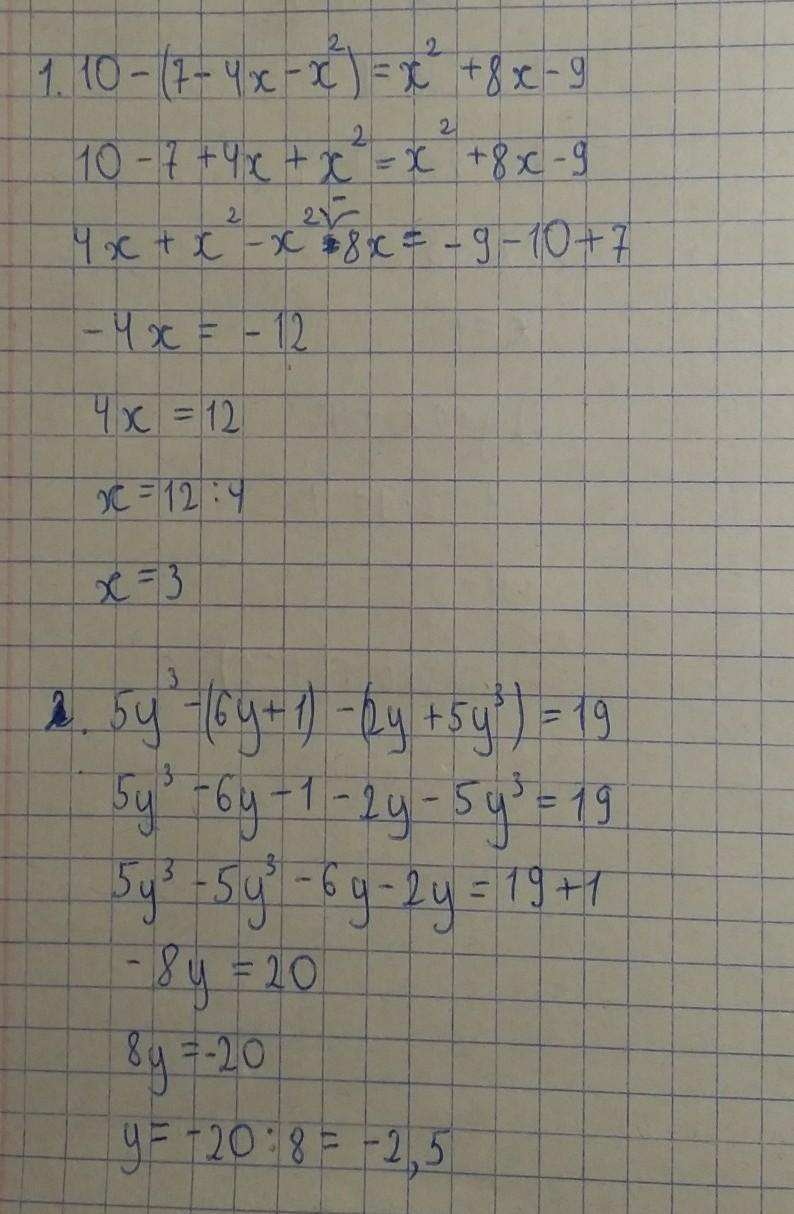 1. 10 - (7 - 4x - x²) = x² + 8x - 9
10 - 7 + 4x + x² = x² + 8x - 9
4x + x² - x² - 8x = - 9 - 10 + 7
- 4x = - 12
4x = 12
x = 12 : 4
x = 3
2. 5y³ - (6y + 1) - (2y + 5y³) = 19
5y³ - 6y - 1 - 2y - 5y³ = 19
5y³ - 5y³ - 6y - 2y = 19 + 1
- 8y = 20
8y = -20
y = -20 : 8 = -2,5